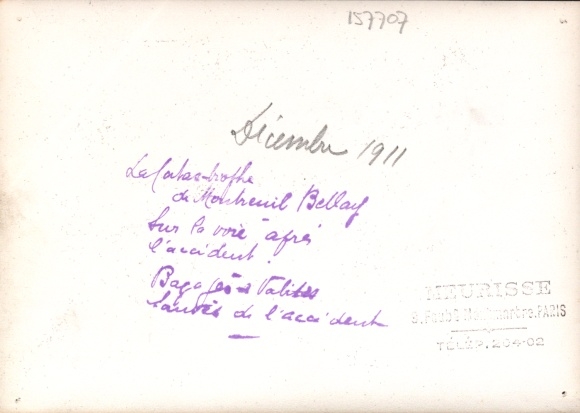 157707
Décembre 1911
La Catastrophe
de Montreuil Bellay
Sur la voie après
l'accident.
Bagages Valises
Sauvés de l'accident
MEURISSE
Faubg Montmartre. PARIS
TÉLÉP. 204-02